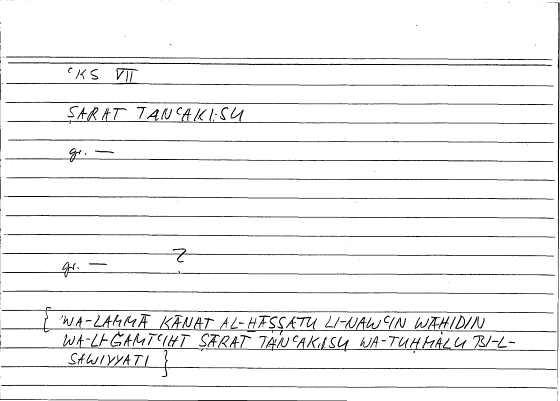 ʿKS VII
ṢARAT TANʿAKISU
gr. —
?
gr. —
[ WA-LAMMĀ KĀNAT AL-ḪĀṢṢATU LI-NAWʿIN WĀḤIDIN
WA-LI-ĞAMĪʿIHI ṢĀRAT TANʿAKISU WA-TUḤMALU BI-L-
SAWIYYATI ]